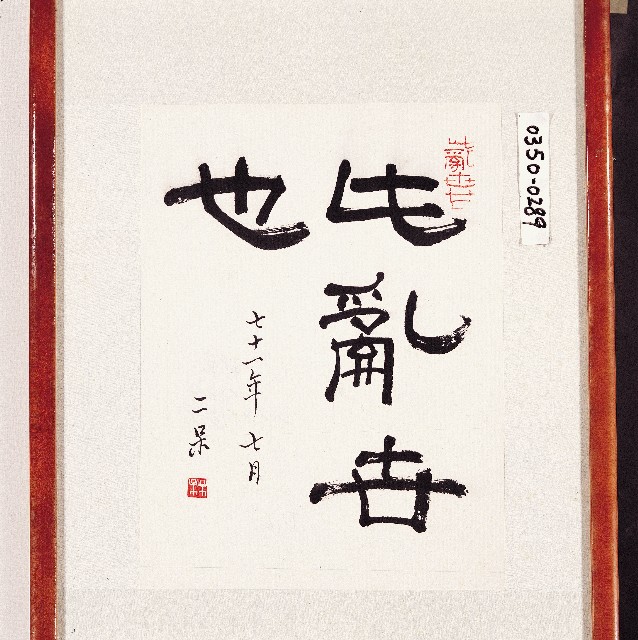 此亂世
也
七十一年七月
二呆
0350-0289